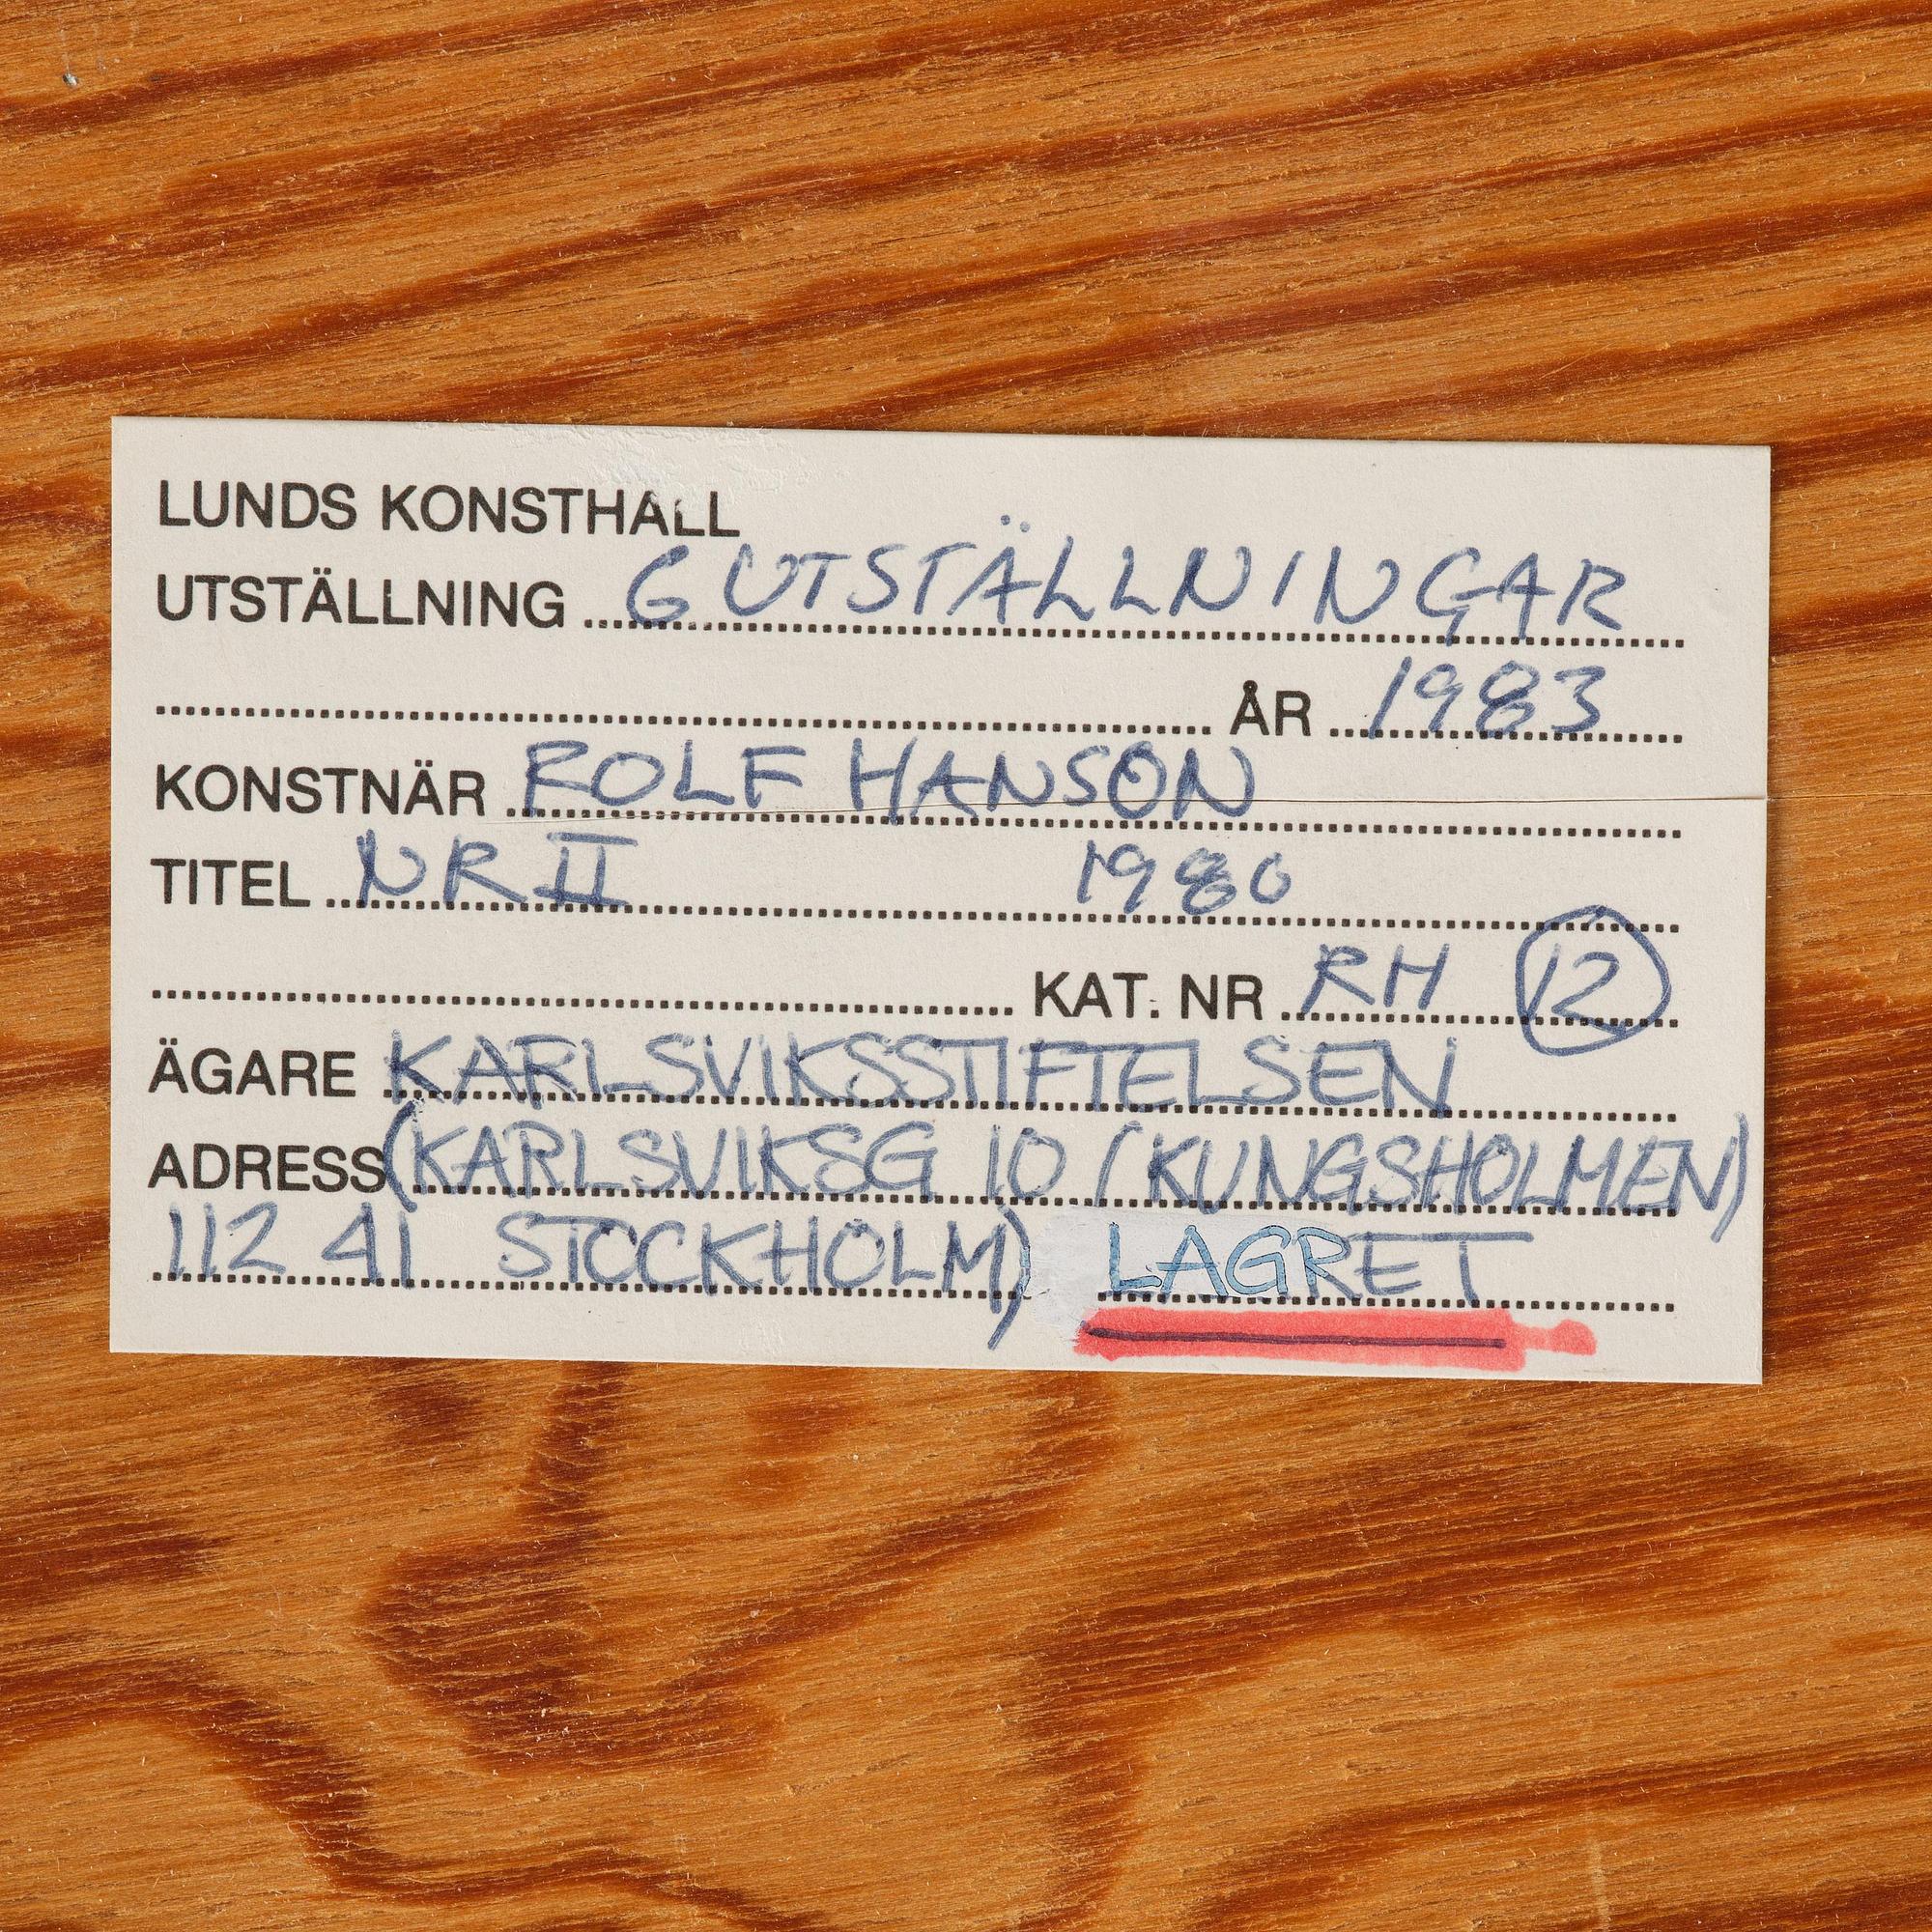 LUNDS KONSTHALL
UTSTÄLLNING 6 UTSTÄLLNINGAR
ÅR 1983
KONSTNÄR ROLF HANSON
TITEL NR II 1980
KAT. NR RH 12
ÄGARE KARLSVIKSSTIFTELSEN
ADRESS (KARLSVIKSG 10 (KUNGSHOLMEN)
112 41 STOCKHOLM) LAGRET